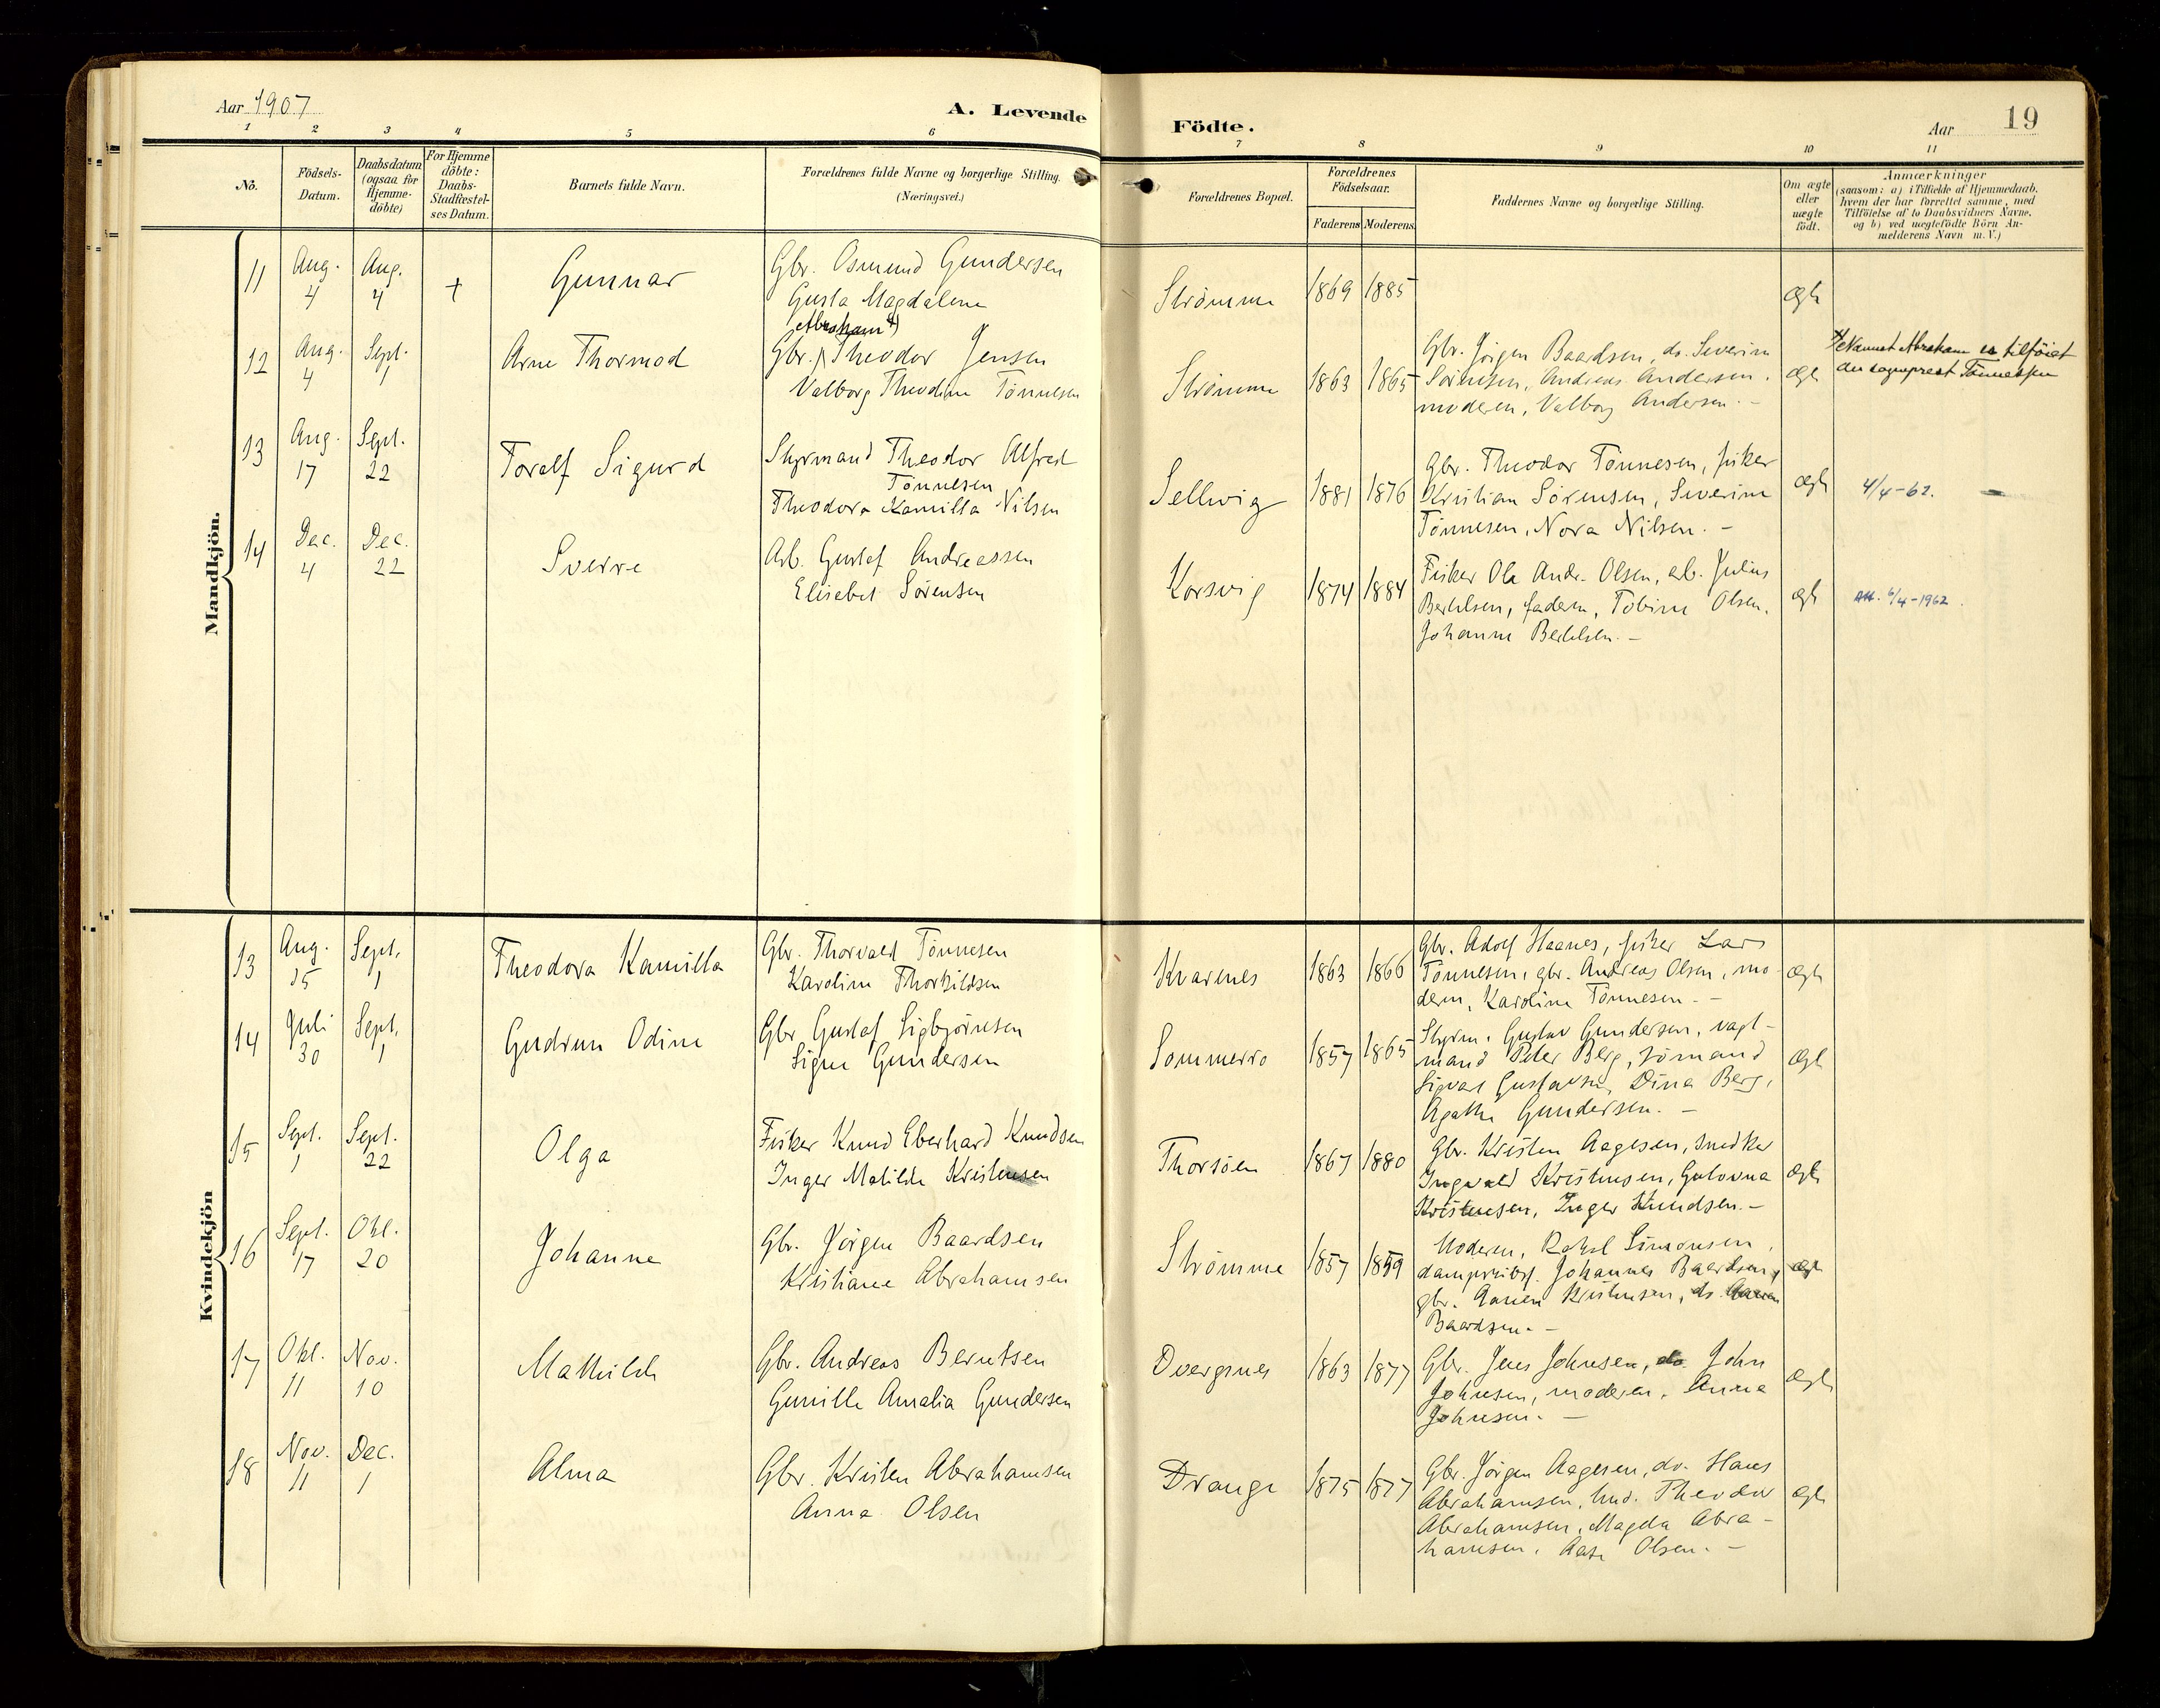 Aar 1907
A. Levende
Födte.
Aar
19
1 2 3 4 5 6 7 8 9 10 11
No.
Födsels-
Datum.
Daabsdatum
(ogsaa for
Hjemme-
döbte)
For Hjemme
döbte:
Daabs-
Stadfæstel-
ses Datum.
Barnets fulde Navn.
Forældrenes fulde Navne og borgerlige Stilling.
(Næringsvei.)
Forældrenes Bopæl.
Forældrenes
Födselsaar.
Faderens Moderens
Faddernes Navne og borgerlige Stilling.
Om ægte
eller
uægte
födt.
Anmærkninger
(saasom: a) i Tilfælde af Hjemmedaab,
hvem der har forrettet samme, med
Tilföielse af to Daabsvidners Navne,
og b) ved uægtefödte Börn An-
melderens Navn m.V.)
Mandkjön.
11 Aug. 4 Aug. 4 + Gunnar
Gbr. Osmund Gundersen
Gusta Magdalene
Strömme 1869 1885 Ægte
12 Aug. 4 Sept. 1 Arne Thormod
(Abraham +)
Gbr. Theodor Jensen
Valborg Theodine Tönnesen
Strömme 1863 1865
Gbr. Jörgen Baardsen, do. Severin
Sörensen, Andreas Andersen,
moderen, Valborg Andersen. -
Ægte
+) Navnet Abraham er tilföiet
av sogneprest Tönnessen
13 Aug. 17 Sept. 22 Toralf Sigurd
Styrmand Theodor Alfred
Tönnesen
Theodora Kamilla Nilsen
Sellvig 1881 1876
Gbr. Theodor Tönnesen, fisker
Kristian Sörensen, Severine
Tönnesen, Nora Nilsen. -
Ægte
4/4-62. -
14 Dec. 4 Dec. 22 Sverre
Arb. Gustaf Andreassen
Elisabet Sörensen
Korsvig 1874 1884
Fisker Ole Andr. Olsen, arb. Julius
Berthelsen, faderen, Tobine Olsen,
Johanne Berthelsen. -
Ægte
Att. 6/4-1962.
Kvindekjön
13 Aug. 15 Sept. 1 Theodora Kamilla
Gbr. Thorvald Tönnesen
Karoline Thorkildsen
Kvarnes 1863 1866
Gbr. Adolf Haanes, fisker Lars
Tönnesen, gbr. Andreas Olsen, mo-
deren, Karoline Tönnesen. -
Ægte
14 Juli 30 Sept. 1 Gudrun Odine
Gbr Gustaf Sigbjörnsen
Signe Gundersen
Sommerro 1857 1865
Styrm. Gustav Gundersen, vagt-
mand Peter Berg, sömand
Sigvart Gustavsen, Dina Berg,
Agathe Gundersen. -
Ægte
15 Sept. 1 Sept. 22 Olga
Fisker Knud Eberhard Knudsen
Inger Matilde Kristensen
Thorsöen 1867 1880
Gbr. Kristen Aagesen, snedker
Ingvald Kristensen, Gulovna
Kristensen, Inger Knudsen. -
Ægte
16 Sept. 17 Okt. 20 Johanne
Gbr. Jörgen Baardsen
Kristiane Abrahamsen
Strömme 1857 1859
Moderen, Rakel Simonsen,
dampskibsf. Johannes Baardsen,
gbr. Aanen Kristensen, do.
Baardsen. -
Ægte
17 Okt. 11 Nov. 10 Mathilde
Gbr. Andreas Berntsen
Gunille Amalia Gundersen
Dvergsnes 1863 1877
Gbr. Jens Johnsen, do. John
Johnsen, moderen, Anna
Johnsen. -
Ægte
18 Nov. 11 Dec. 1 Alma
Gbr. Kristen Abrahamsen
Anna Olsen
Drange 1875 1877
Gbr. Jörgen Aagesen, do. Hans
Abrahamsen, Theodor
Abrahamsen, Magda Abra-
hamsen, Aase Olsen. -
Ægte